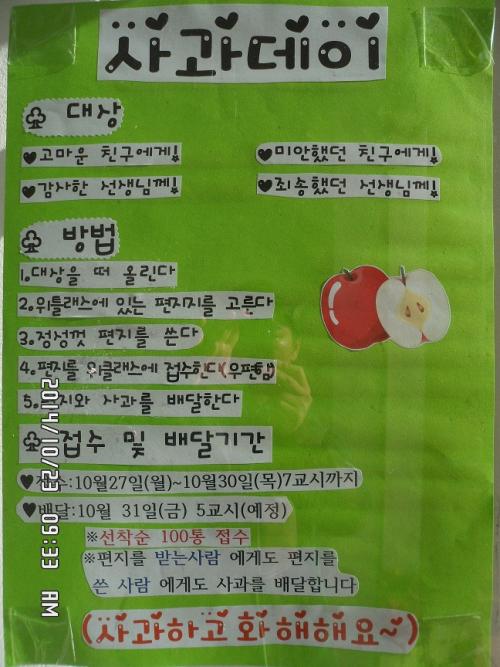 사과데이
♧ 대상
♥고마운 친구에게!
♥미안했던 친구에게!
♥감사한 선생님께!
♥죄송했던 선생님께!
♧ 방법
1.대상을 떠 올린다
2.위클래스에 있는 편지지를 고른다
3.정성껏 편지를 쓴다
4.편지를 위클래스에 접수한다(우편함)
5.편지와 사과를 배달한다
♧ 접수 및 배달기간
♥접수:10월27일(월)~10월30일(목)7교시까지
♥배달:10월 31일(금) 5교시(예정)
※선착순 100통 접수
※편지를 받는사람 에게도 편지를
쓴 사람 에게도 사과를 배달합니다
(사과하고 화해해요~)
2014/10/23 09:33 AM